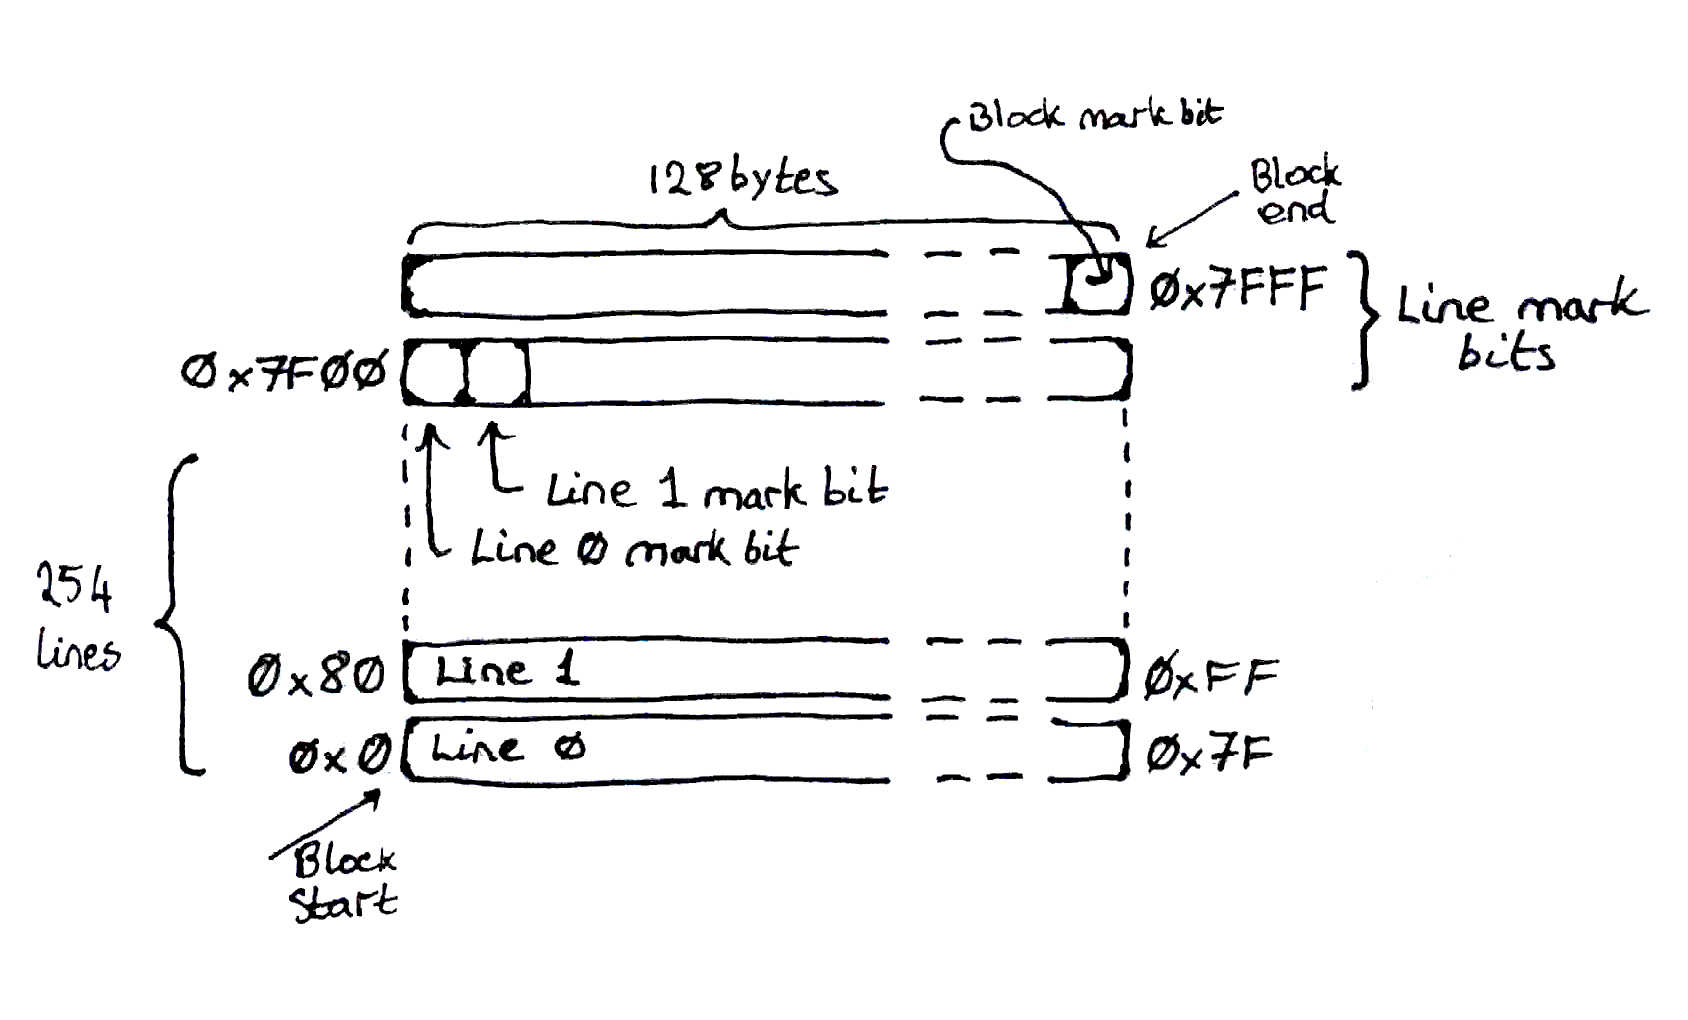 Block mark bit
128 bytes
Block
end
0x7FFF
Line mark
bits
0x7F00
Line 1 mark bit
Line 0 mark bit
254
lines
0x80
Line 1
0xFF
0x0
Line 0
0x7F
Block
Start